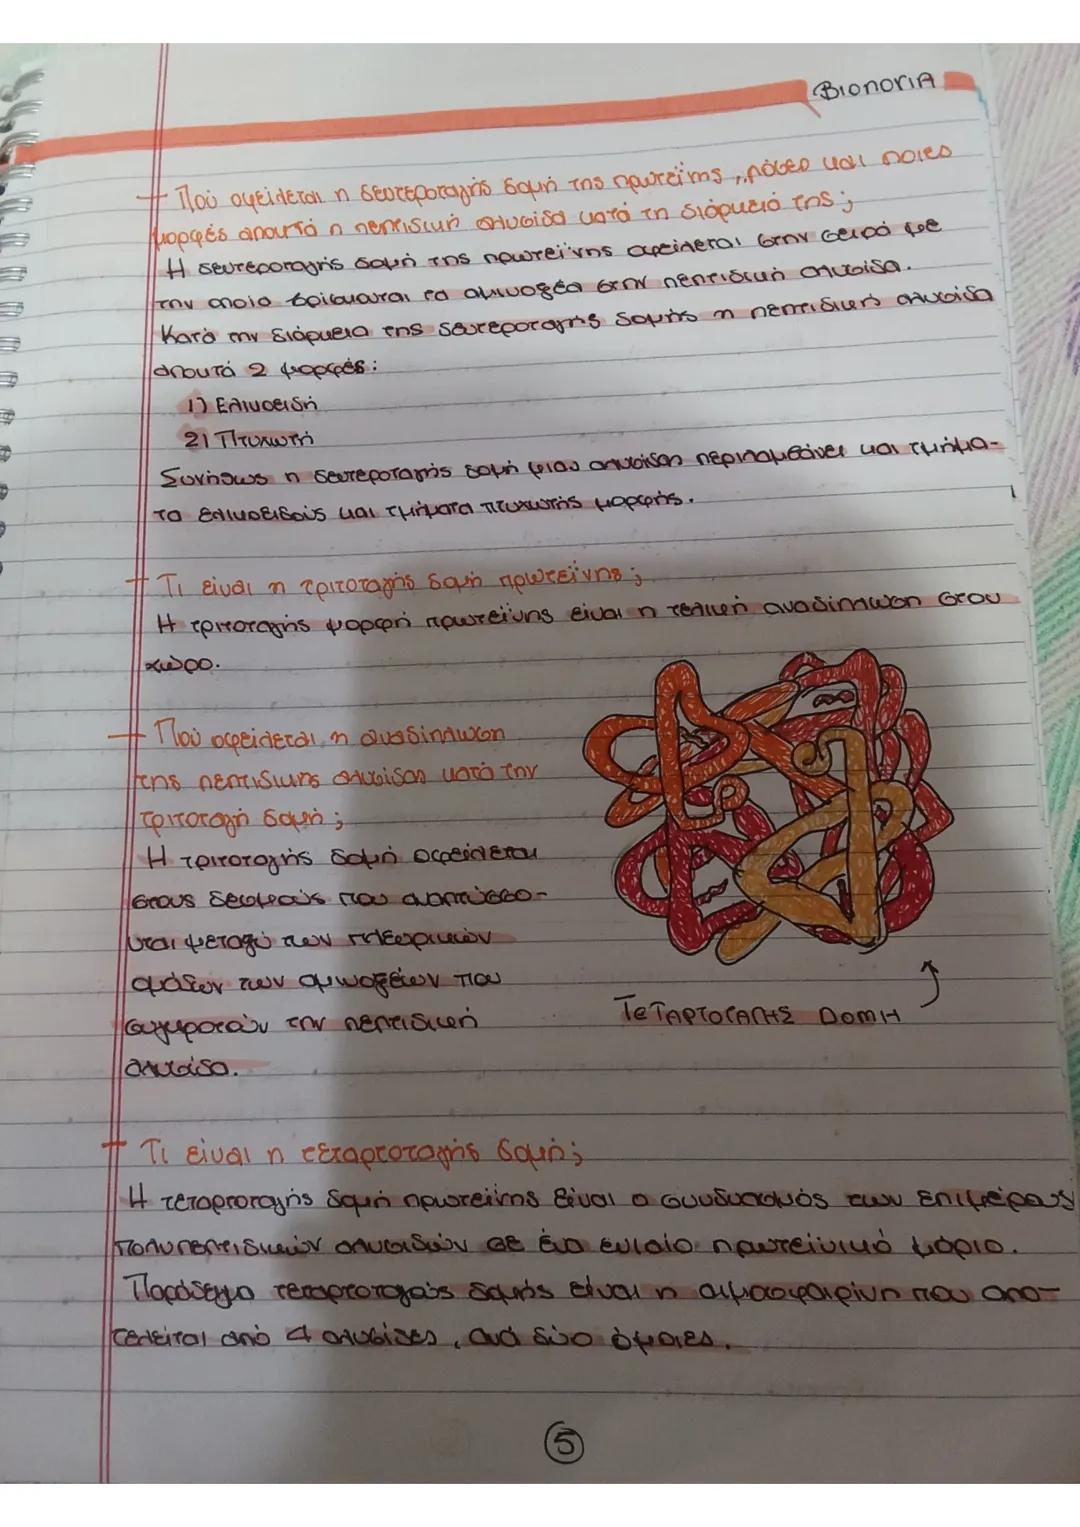 Βιολογία
+ Πού οφείλεται η δευτεροταγής δομή της πρωτεΐνης, πόσες και ποιες
μορφές αποκτά η πεπτιδική αλυσίδα κατά τη διάρκειά της;
Η δευτεροταγής δομή της πρωτεΐνης οφείλεται στην σειρά με
την οποία βρίσκονται τα αμινοξέα στην πεπτιδική αλυσίδα.
Κατά την διάρκεια της δευτεροταγής δομής η πεπτιδική αλυσίδα
αποκτά 2 μορφές:
1) Ελικοειδή
2) Πτυχωτή
Συνήθως η δευτεροταγής δομή μιας αλυσίδας περιλαμβάνει και τμήμα-
τα ελικοειδούς και τμήματα πτυχωτής μορφής.
+ Τι είναι η τριτοταγής δομή πρωτεΐνης;
Η τριτοταγής μορφή πρωτεΐνης είναι η τελική αναδίπλωση στον
χώρο.
+ Πού οφείλεται η αναδίπλωση
της πεπτιδικής αλυσίδας κατά την
τριτοταγή δομή;
Η τριτοταγής δομή οφείλεται
στους δεσμούς που αναπτύσσο-
νται μεταξύ των πλευρικών
ομάδων των αμινοξέων που
συγκροτούν την πεπτιδική
αλυσίδα.
ΤεΤΑΡΤΟΤΑΓΗΣ ΔΟΜΗ
+ Τι είναι η τεταρτοταγής δομή;
Η τεταρτοταγής δομή πρωτεΐνης είναι ο συνδυασμός των επιμέρους
πολυπεπτιδικών αλυσίδων σε ένα ενιαίο πρωτεϊνικό μόριο.
Παράδειγμα τεταρτοταγούς δομής είναι η αιμοσφαιρίνη που απο-
τελείται από 4 αλυσίδες, ανά δύο όμοιες.
5